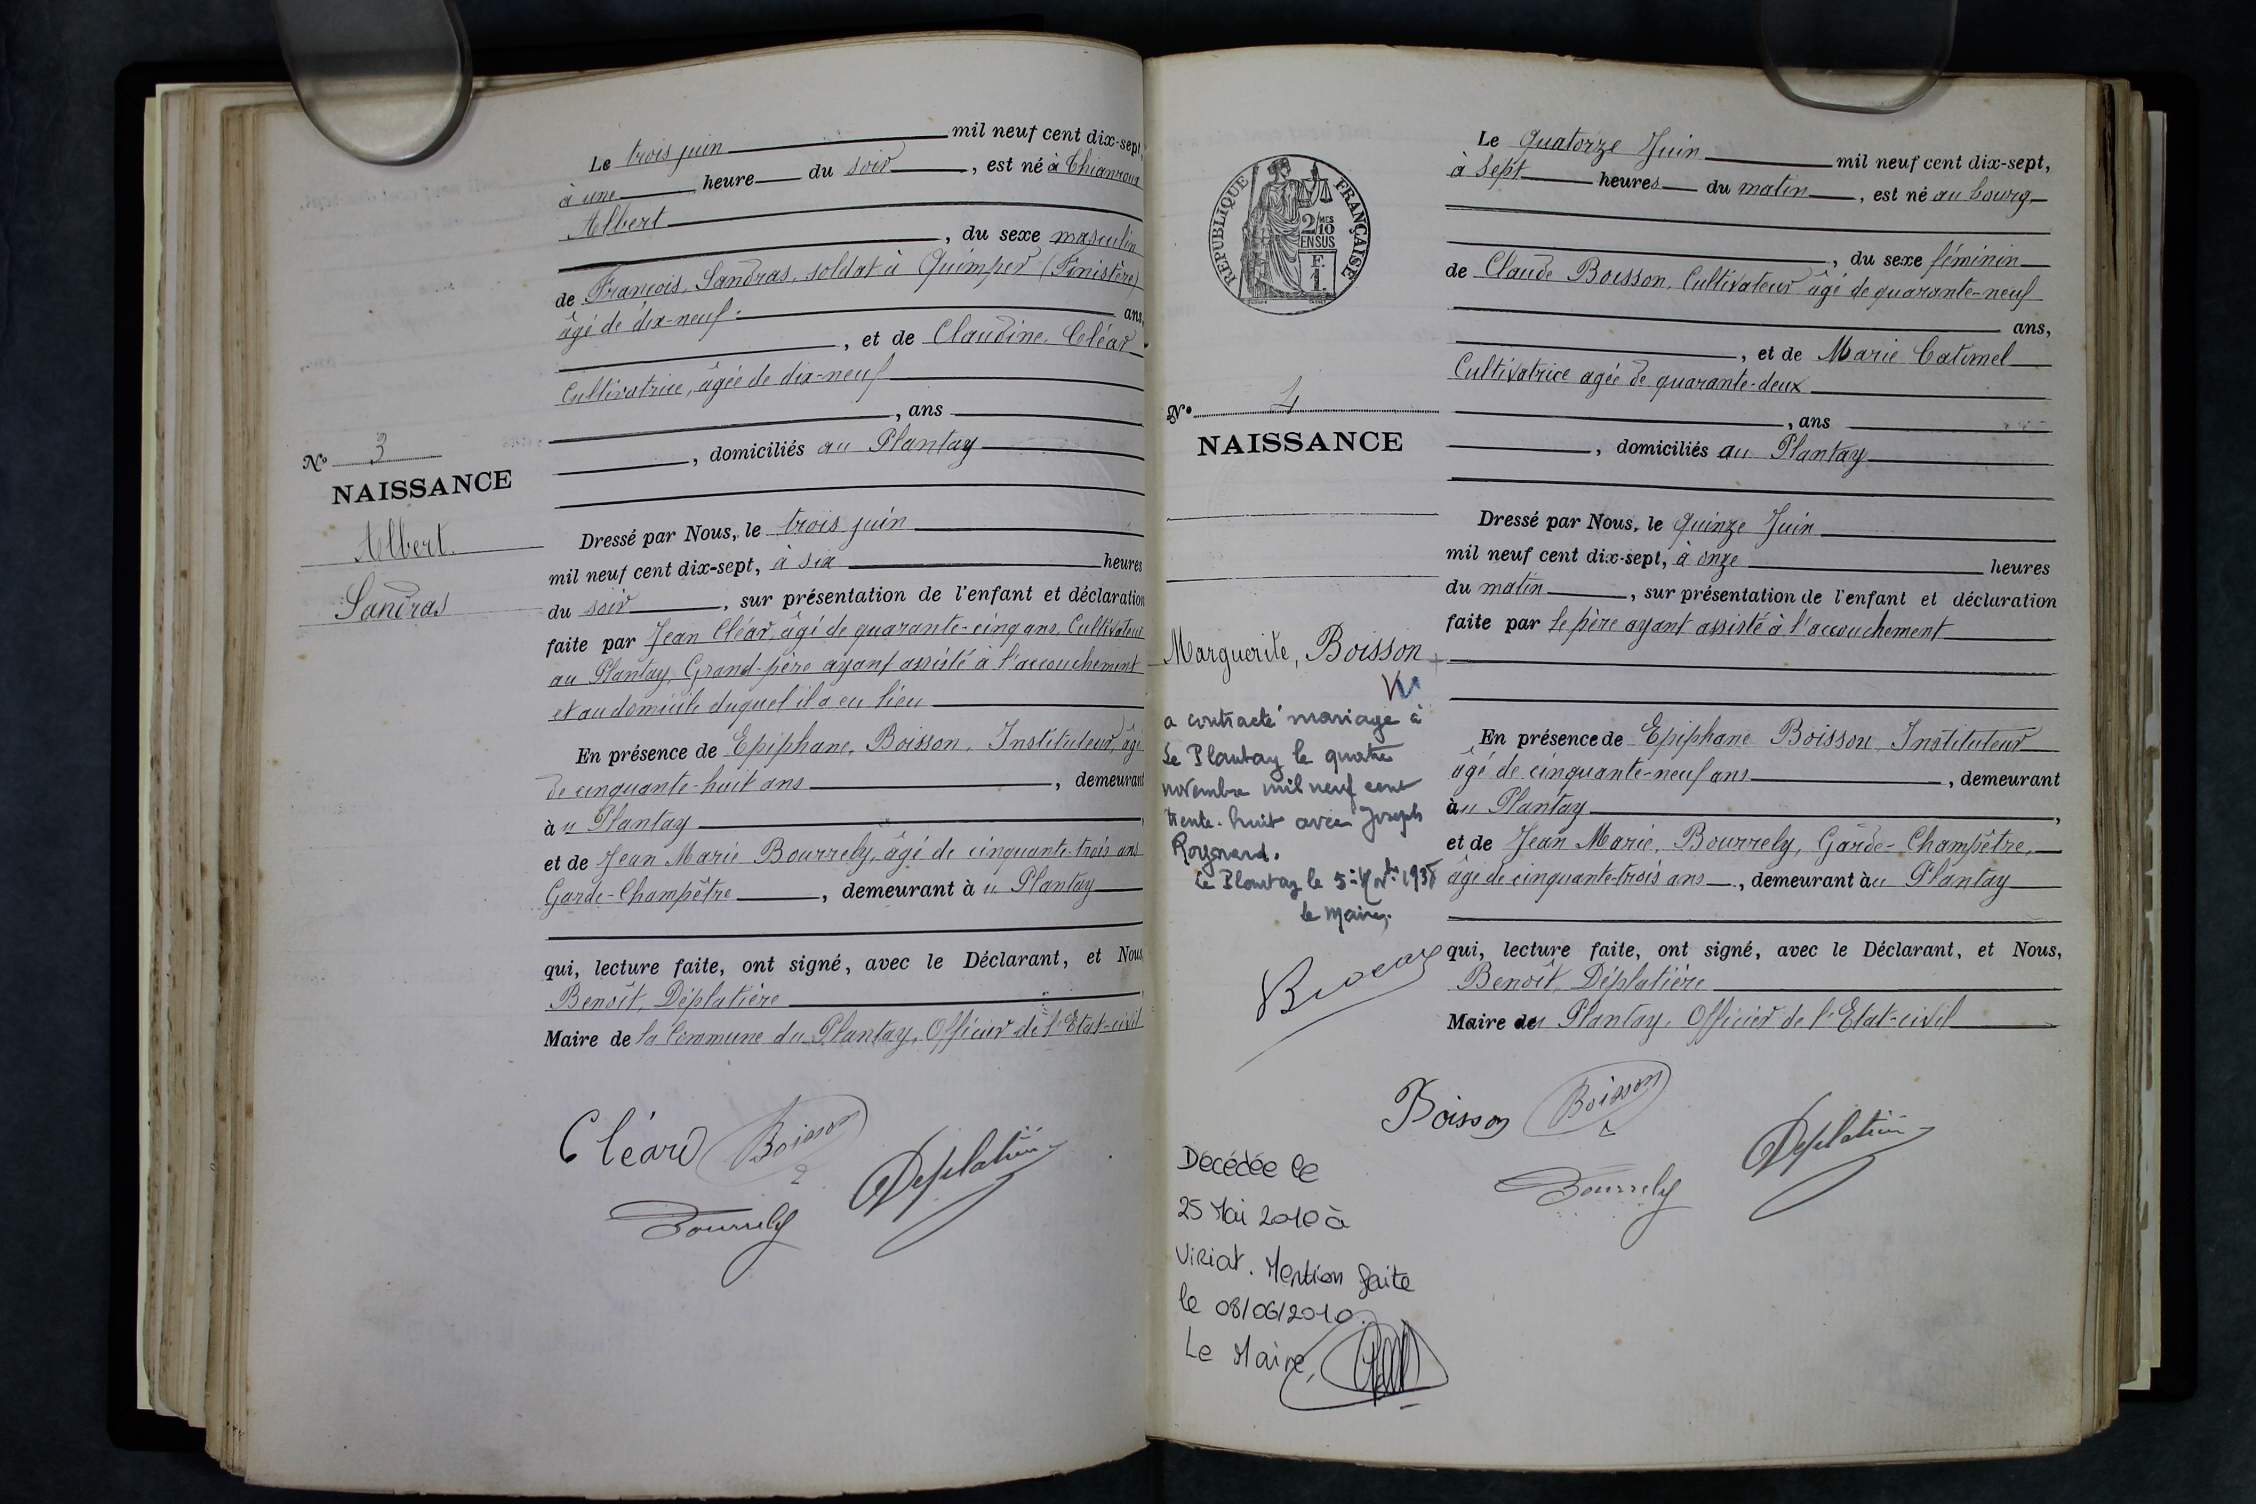 Le trois juin mil neuf cent dix-sept,
à une heure du soir, est né à
Albert
, du sexe masculin
de François, Sandras, soldat à Quimper (Finistère)
âgé de dix-neuf ans,
, et de Claudine, Cléar
Cultivatrice, âgée de dix-neuf
, ans
, domiciliés au Plantay
N° 3
NAISSANCE
Albert
Sandras
Dressé par Nous, le trois juin
mil neuf cent dix-sept, à six heures
du soir, sur présentation de l'enfant et déclaration
faite par Jean Cléar, âgé de quarante-cinq ans, Cultivateur
au Plantay, Grand-père ayant assisté à l'accouchement
et au domicile duquel il a eu lieu
En présence de Epiphane, Boisson, Instituteur, âgé
de cinquante-huit ans, demeurant
àu Plantay,
et de Jean Marie Bourrely, âgé de cinquante-trois ans
Garde-Champêtre, demeurant àu Plantay
qui, lecture faite, ont signé, avec le Déclarant, et Nous,
Benoît, Déplatière,
Maire de la Commune du Plantay, Officier de l'Etat-civil
Cléard Boisson
Bourrely Deplatière
RÉPUBLIQUE FRANÇAISE
2/10 MES
EN SUS
F.
1.
Le Quatorze Juin mil neuf cent dix-sept,
à Sept heures du matin, est né au bourg
, du sexe féminin
de Claude Boisson, Cultivateur âgé de quarante-neuf
ans,
, et de Marie Catimel
Cultivatrice agée de quarante-deux
, ans
, domiciliés au Plantay
N° 4
NAISSANCE
Marguerite, Boisson
a contracté mariage à
Le Plantay le quatre
novembre mil neuf cent
trente-huit avec Joseph
Roynard.
Le Plantay le 5 Nov. 1938
le Maire,
Dressé par Nous, le Quinze Juin
mil neuf cent dix-sept, à onze heures
du matin, sur présentation de l'enfant et déclaration
faite par le père ayant assisté à l'accouchement
En présence de Epiphane Boisson, Instituteur
âgé de cinquante-neuf ans, demeurant
àu Plantay,
et de Jean Marie, Bourrely, Garde-Champêtre,
âgé de cinquante-trois ans, demeurant àu Plantay
qui, lecture faite, ont signé, avec le Déclarant, et Nous,
Benoît, Déplatière
Maire du Plantay, Officier de l'Etat-civil
Boisson Boisson
Bourrely Deplatière
Décédée le
25 Mai 2010 à
Viriat. Mention faite
le 08/06/2010.
Le Maire,